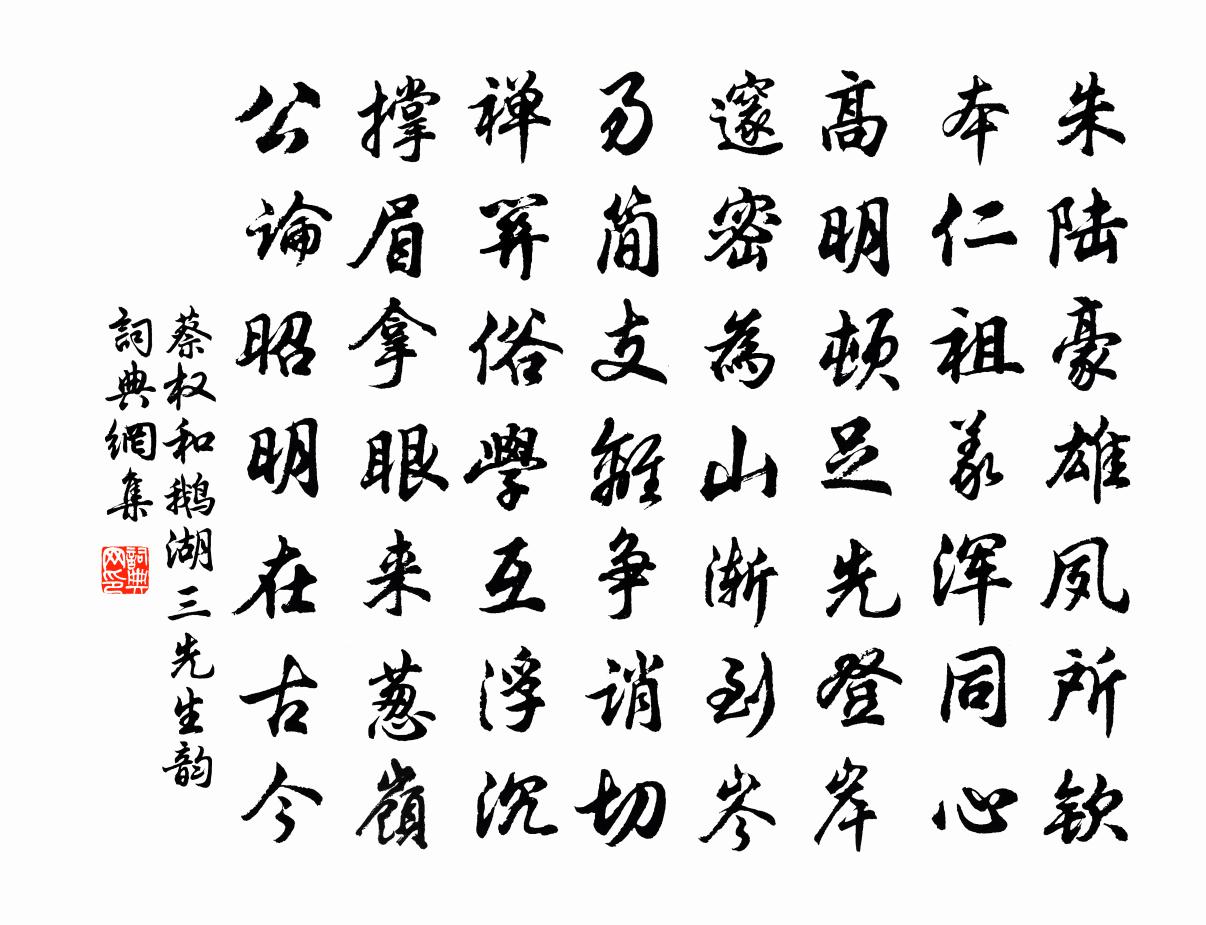 朱陆豪雄夙所钦
本仁祖义浑同心
高明顿足先登岸
邃密為山渐到岑
易简支離争诮切
禅算俗學互浮沉
撑眉拿眼来葱嶺
公论昭明在古今
蔡权和鹅湖三先生韵
詞典網集
詞典网印